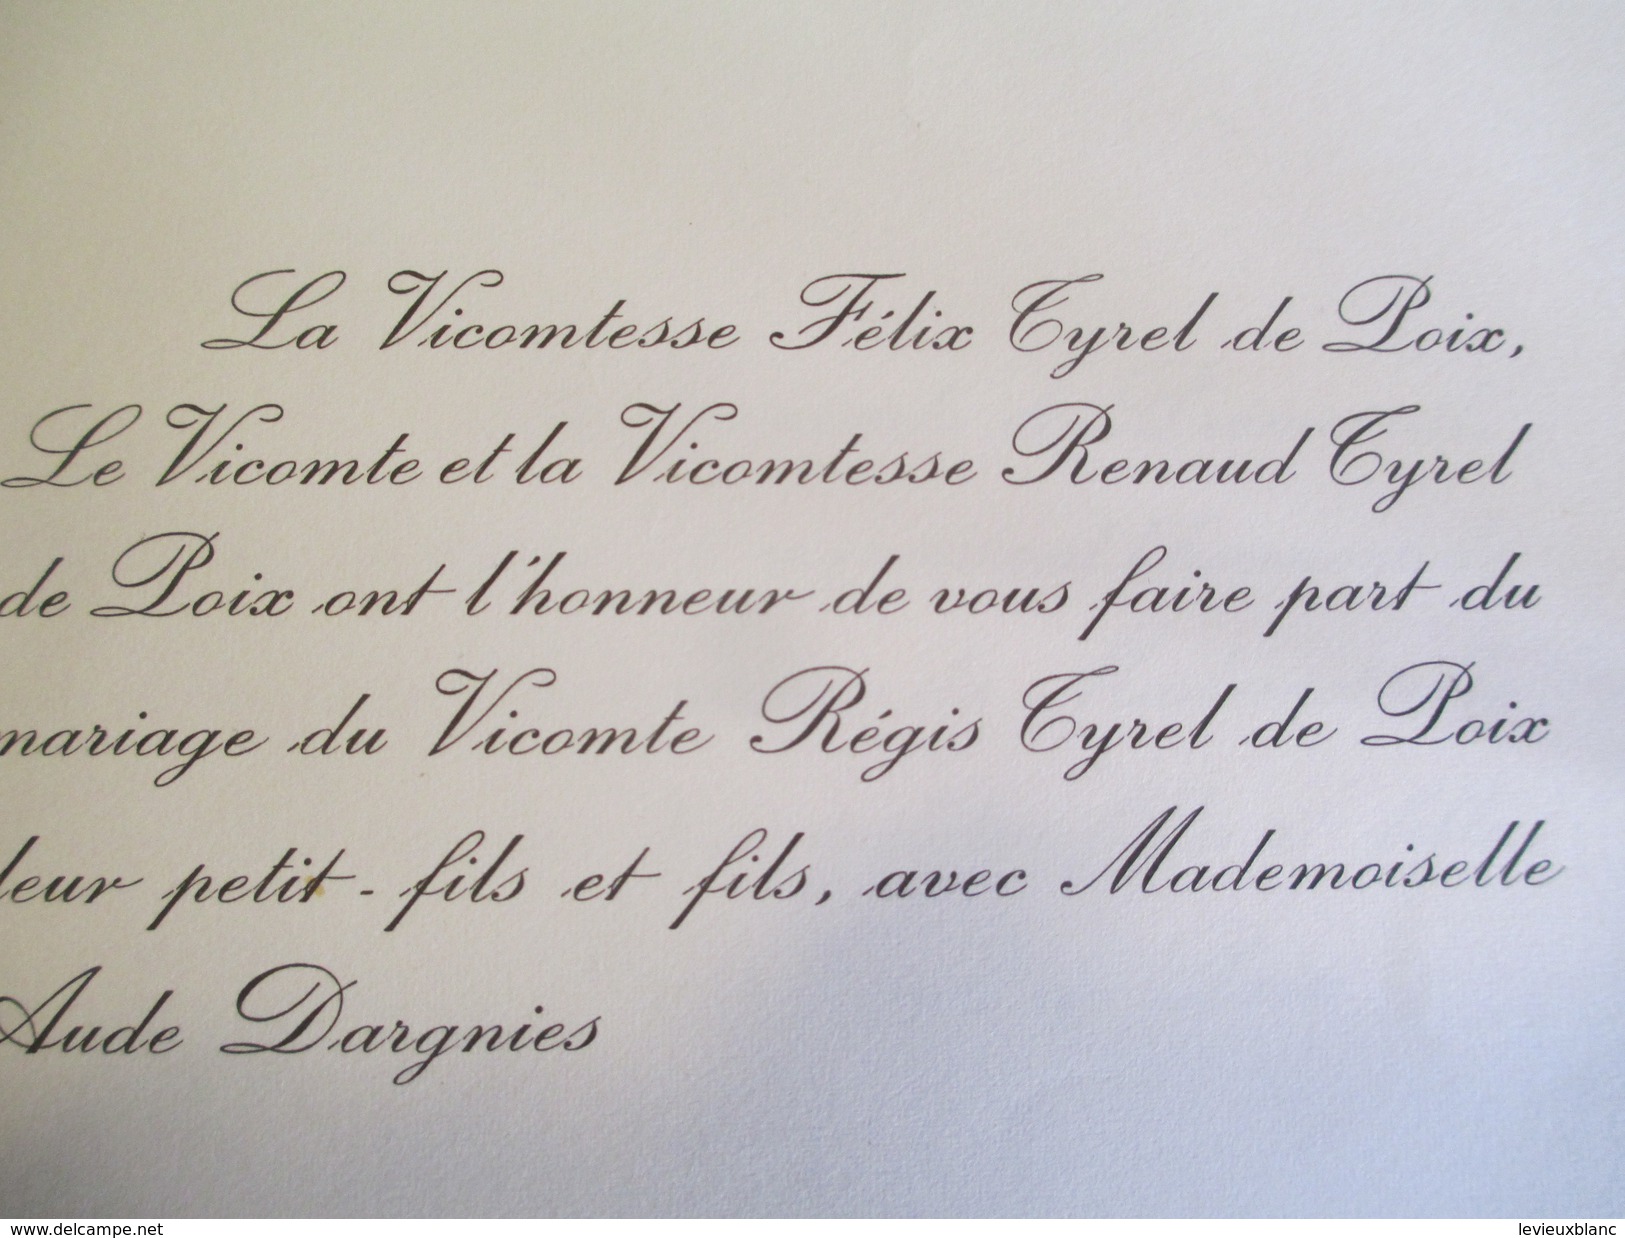 La Vicomtesse Félix Tyrel de Poix,
Le Vicomte et la Vicomtesse Renaud Tyrel
de Poix ont l'honneur de vous faire part du
mariage du Vicomte Régis Tyrel de Poix
leur petit-fils et fils, avec Mademoiselle
Aude Dargnies
www.delcampe.net
levieuxblanc